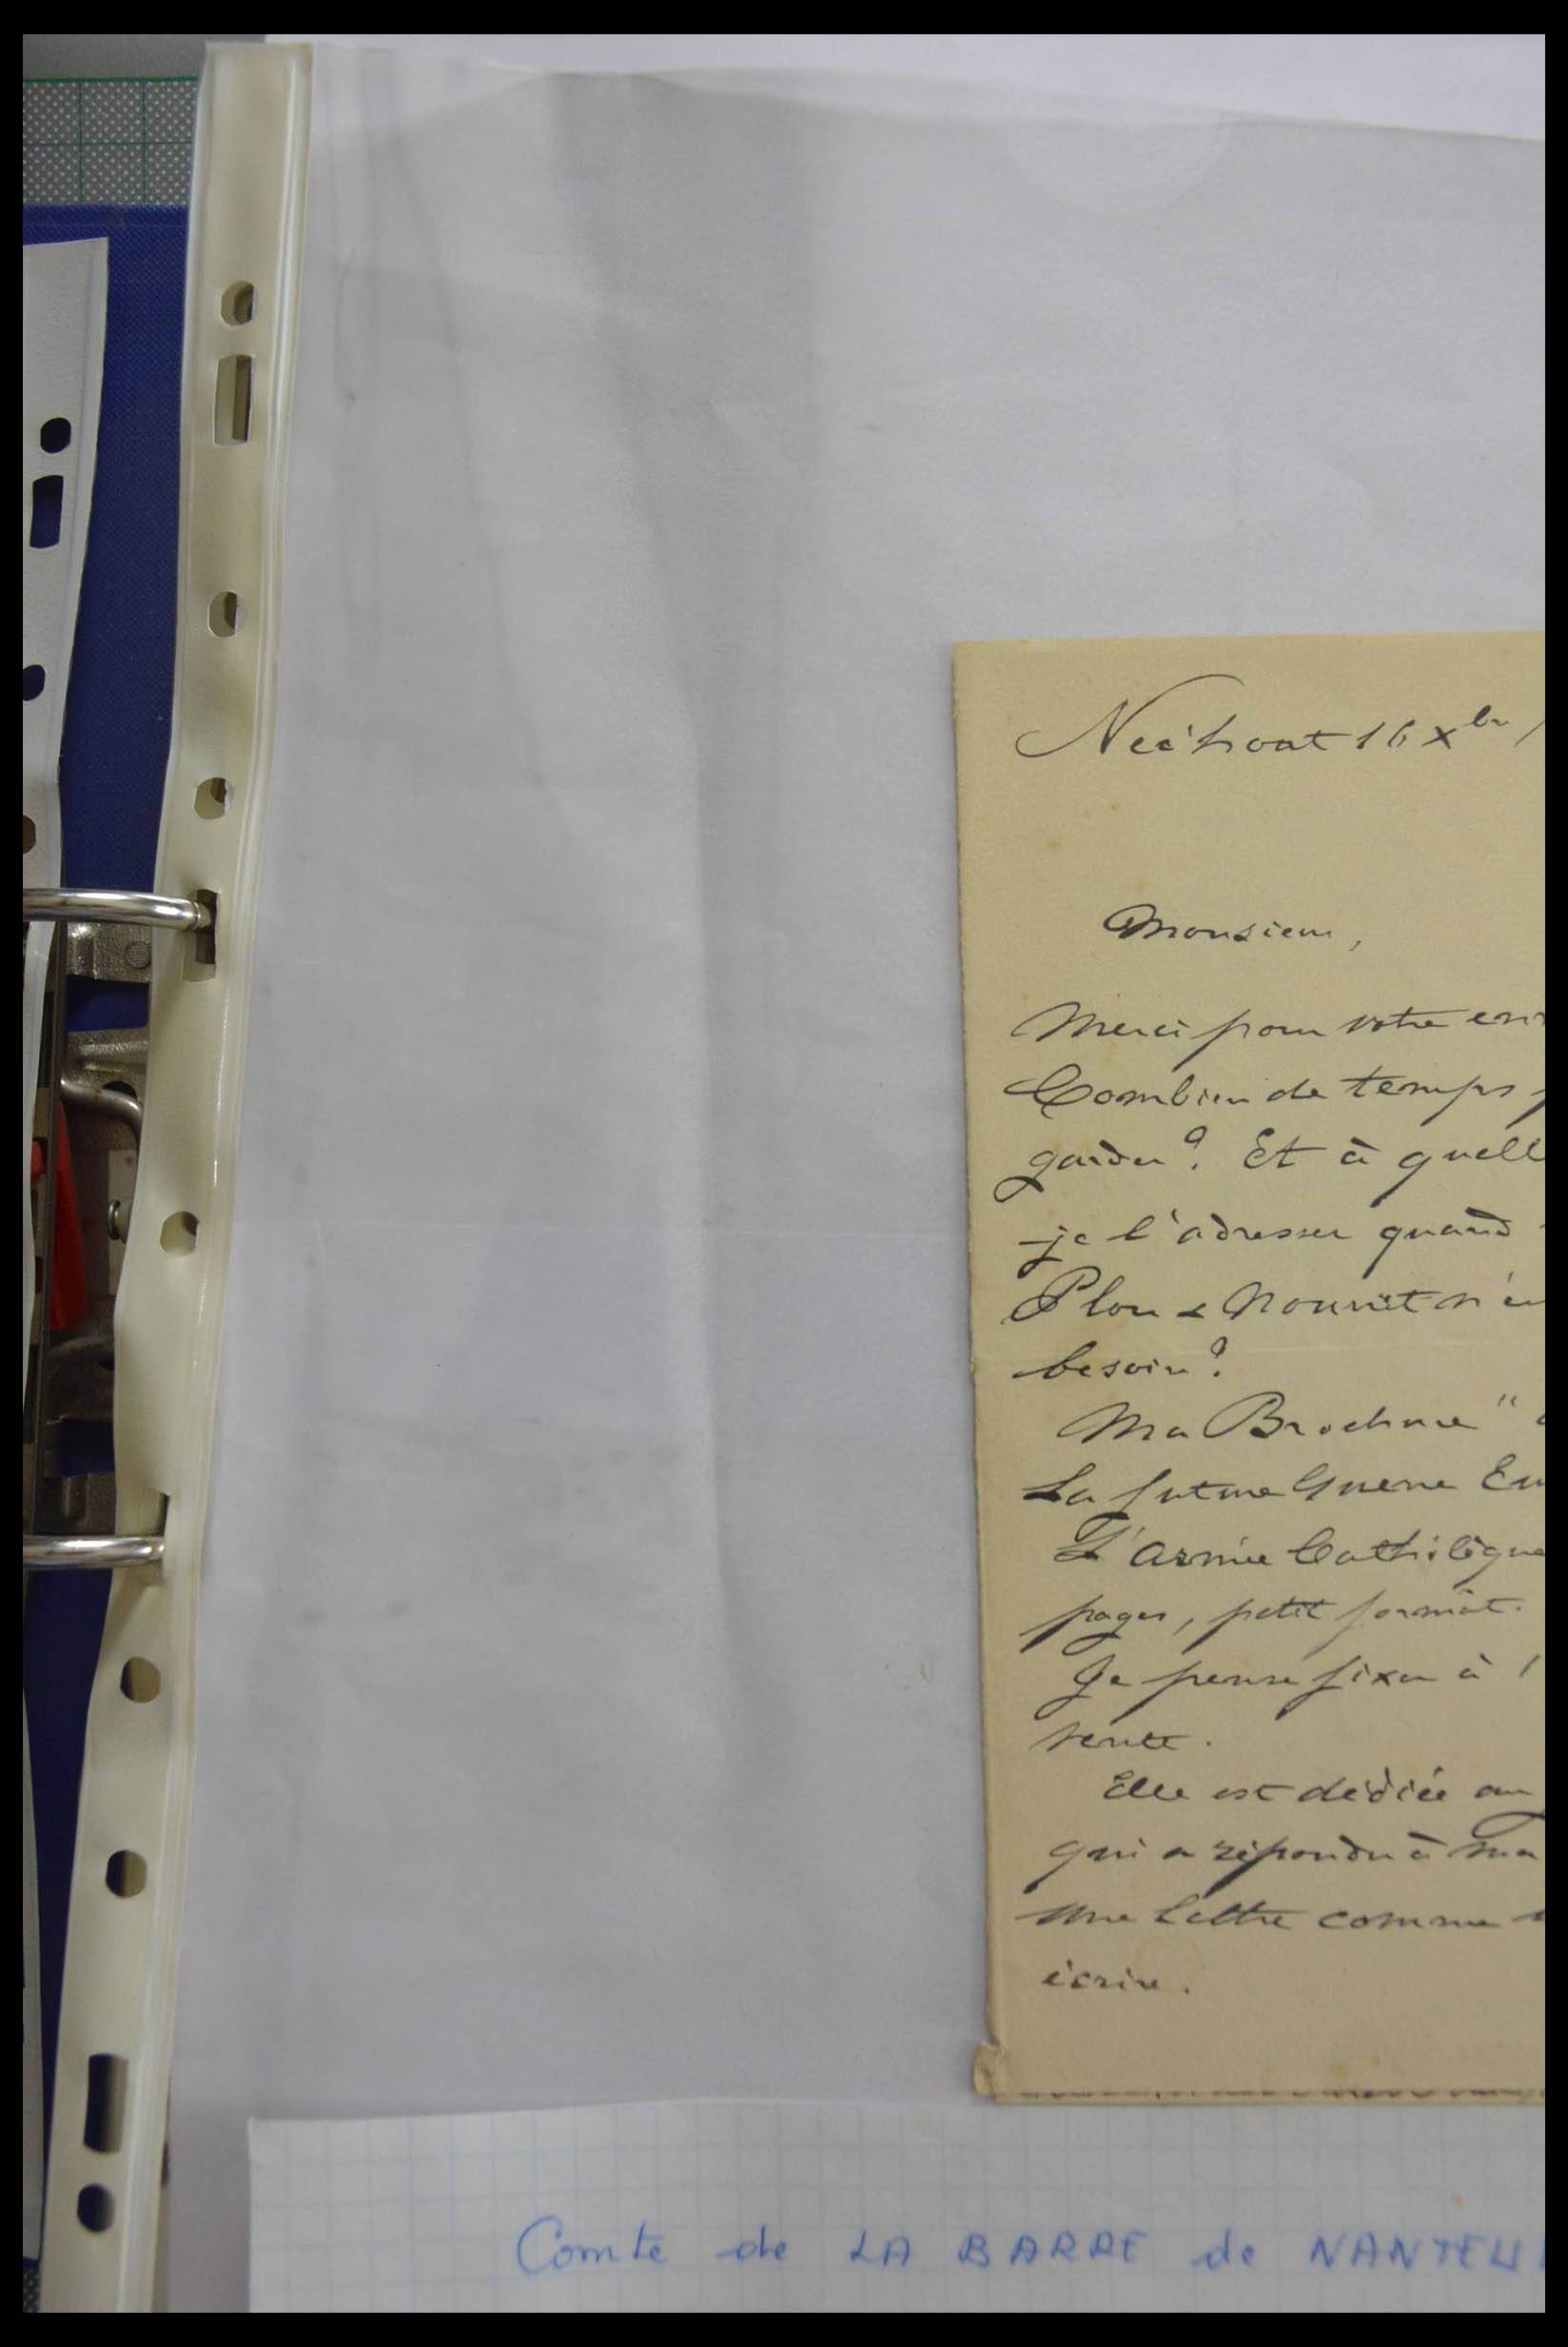 Nec'hoat 16 Xbre
Monsieur,
Merci pour votre
Combien de temps
garder? Et à quell
je l'adresser quand
Plon & Nourrit n'en
besoin?
Ma Brochure "
La future Guerre Eu
L'armée Catholique
pages, petit format.
Je pense fixer à 1
vente.
Elle est dédiée au
qui a répondu à ma
une lettre comme
écrire.
Comte de LA BARRE de NANTEUI